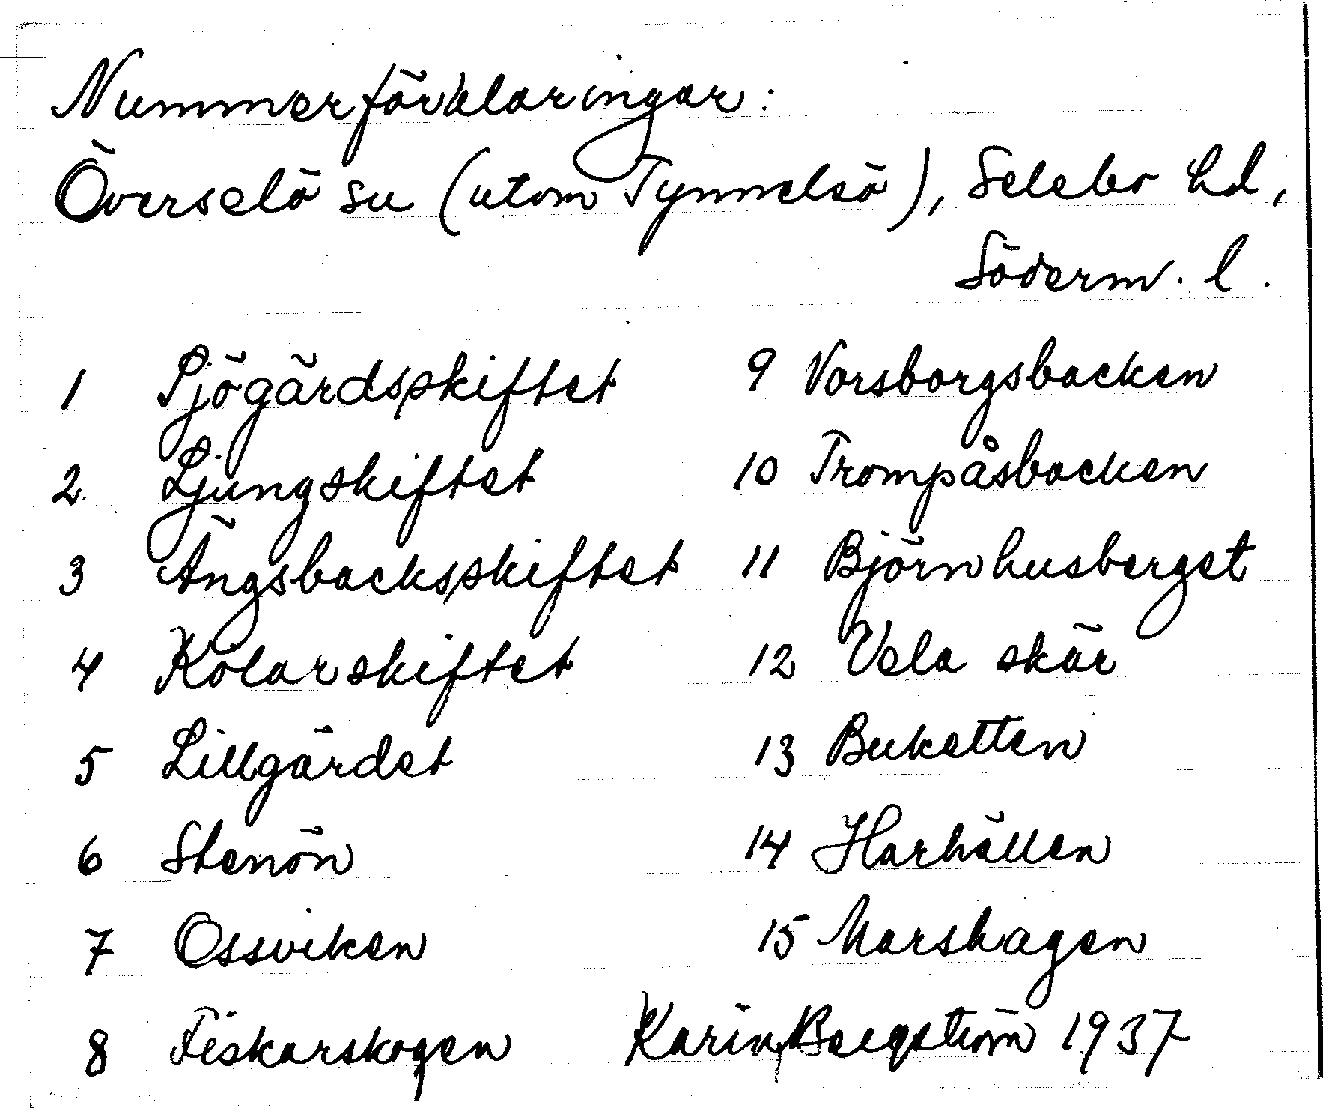 Nummerförklaringar:
Överselö sn (utom Tynnelsö), Selebo hd,
Söderm. l.
1 Sjögärdsskiftet
2 Ljungskiftet
3 Ängsbacksskiftet
4 Kolarskiftet
5 Lillgärdet
6 Stenön
7 Ossviken
8 Fiskarskogen
9 Vorsborgsbacken
10 Trompåsbacken
11 Björnhusberget
12 Vela skär
13 Buketten
14 Harhällen
15 Marshagen
Karin Bergström 1937